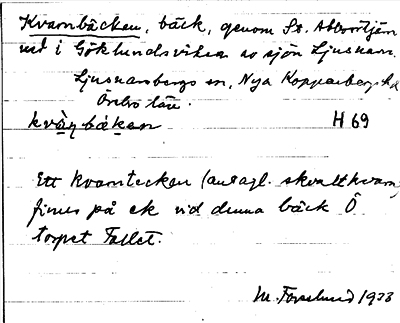 Kvarnbäcken, bäck, genom St. Abborrtjärn
ut i Göklundsviken av sjön Ljusnaren.
Ljusnarsbergs sn, Nya Kopparbergs hd
Örebro län.
kvà̱ṇbäkən H 69
Ett kvarntecken (antagl. skvaltkvarn)
finnes på ek vid denna bäck Ö
torpet Fallet.
M. Forslund 1933